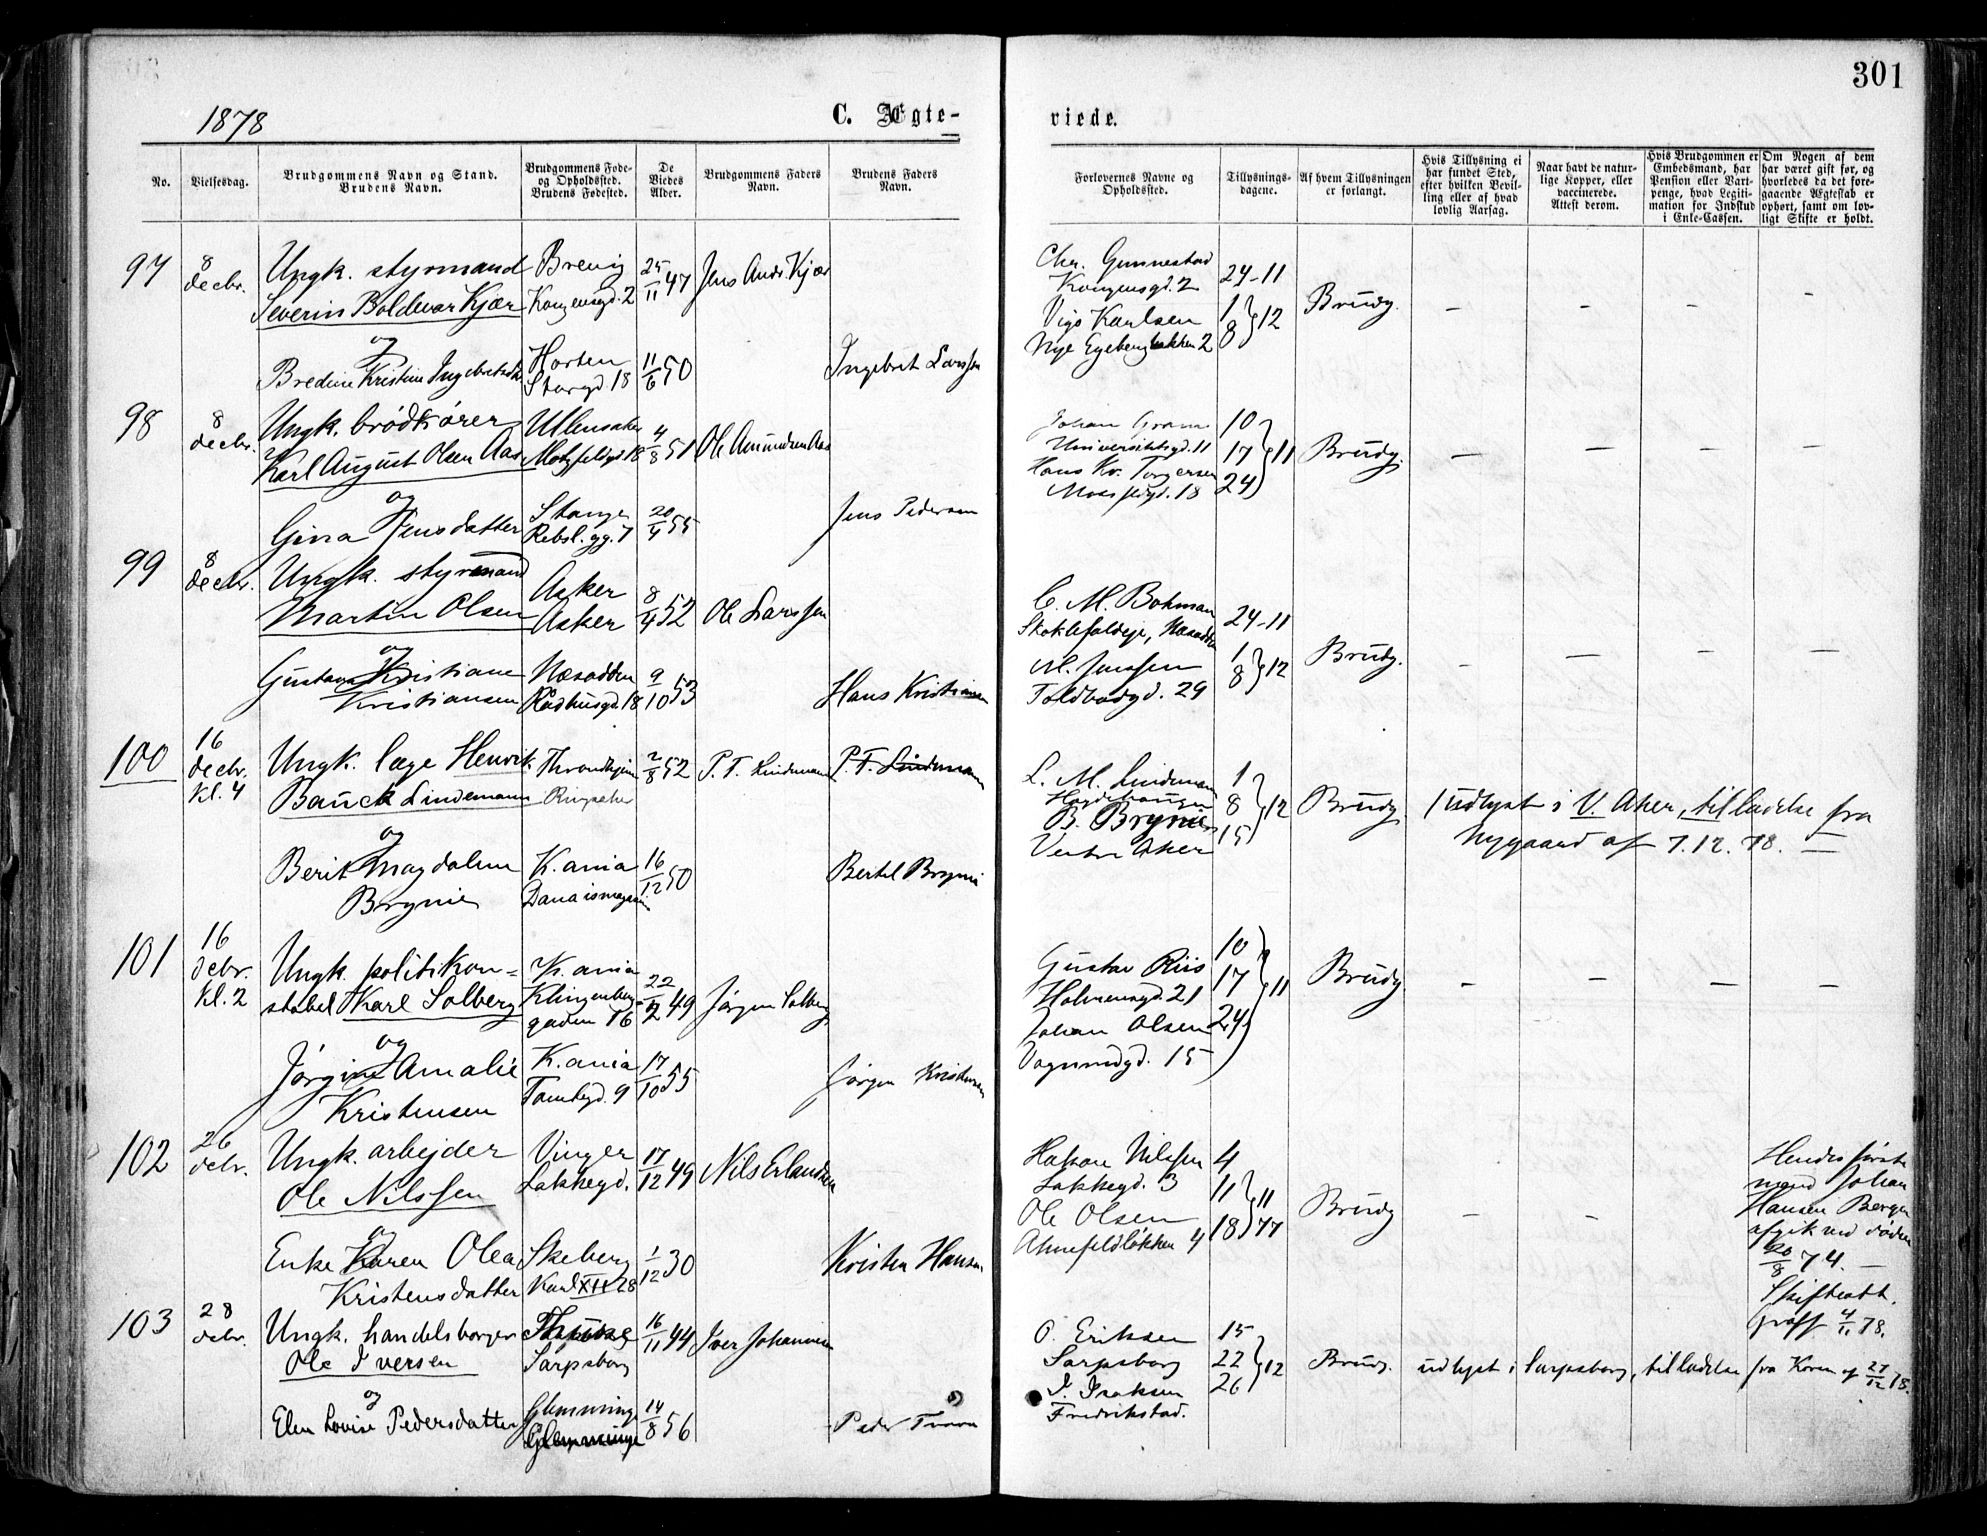 301
1878
C. Ægte-
viede.
No.
Vielsesdag.
Brudgommens Navn og Stand.
Brudens Navn.
Brudgommens Føde-
og Opholdssted.
Brudens Fødested.
De
Viedes
Alder.
Brudgommens Faders
Navn.
Brudens Faders
Navn.
Forlovernes Navne og
Opholdssted.
Tillysnings-
dagene.
Af hvem Tillysningen
er forlangt.
Hvis Tillysning ei
har fundet Sted,
efter hvilken Bevil-
ling eller af hvad
lovlig Aarsag.
Naar havt de natur-
lige Kopper, eller
vaccinerede.
Attest derom.
Hvis Brudgommen er
Embedsmand, har
Pension eller Vart-
penge, hvad Legiti-
mation for Indskud
i Enke-Cassen.
Om Nogen af dem
har været gift før, og
hvorledes da det fore-
gaaende Ægteskab er
ophørt, samt om lov-
ligt Skifte er holdt.
97
8
decbr.
Ungk. styrmand
Severin Boldevar Kjær
og
Bredine Kristine
Brevig
Kongensgd. 2
Horten
Storgd. 18
25/11 47
11/6 50
Jens Andr. Kjær
Ingebret Larssen
Chr. Gunnestad
Kongensgd. 2
Vigo Karlsen
Nye Egeberg løkken 2
24-11
1
8 } 12
Brudg.
– – – –
98
8
decbr.
Ungk. brødkjører
Karl August Olsen Aas
og
Gina Jensdatter
Ullensaker
Motzfeldtgd 18
Stange
Rebsl. gg. 7
4/8 51
20/4 55
Ole Amundsen Aas
Jens Pedersen
Johan Gram
Universitetsgd. 11
Hans Kr. Torgersen
18
10
17 } 11
24
Brudg.
– – – –
99
8
decbr.
Ungk. styrmand
Martin Olsen
og
Gustava Kristiane
Kristiansen
Asker
Asker
Næsodden
Raadhusgd. 18
8/4 52
9/10 53
Ole Larssen
Hans Kristiansen
C. M. Bohman
Næsodden
M. Jenssen
Toldbodgd. 29
24-11
1
8 } 12
Brudg.
– – – –
100
16
decbr.
Kl. 4
Ungk. læge Henrik
Bauck Lindemann
og
Berit Magdalene
Brynie
Throndhjem
Ringsaker
K.ania
2/8 52
16/12 50
P. T. Lindemann
P. T. Lindemann
Bertel Brynie
L. M. Lindeman
B. Brynie
Vestre Aker
1
8 } 12
15
Brudg.
udlyst i V. Aker, tilladelse fra
Nygaard af 7.12.78.
101
16
debr.
Kl. 2
Ungk. politikon-
stabel Karl Solberg
og
Jørgine Amalie
Kristensen
K. ania
Klingenberg-
gaden 16
K. ania
Tomtegd. 9
22/2 49
17/10 55
Jørgen Solberg
Jørgen Kristensen
Gustav Riis
Holmensgd. 21
Johan Olsen
Vognmdgd. 15
10
17 } 11
24
Brudg.
– – – –
102
26
debr.
Ungk. arbejder
Ole Nilssen
og
Enke Karen Olea
Kristensdatter
Vinger
Lakkegd.
Skeberg
Karl XII 28
17/12 49
1/12 30
Nils Erlandsen
Kristen Hansen
Hakon Nilssen
Lakkegd. 3
Ole Olsen
Ahnefeldløkken 4
4
11 } 11
18 } 77
Brudg
– – –
Hendes første
mand Johan
Hansen Bergen
afgik ved døden
20/8 74. –
Skifteatt.
Graff 4/11 78.
103
28
debr.
Ungk. handelsborger
Ole Iversen
og
Elen Lovise Pedersdatter
Sarpsborg
Glemminge
Glemminge
16/11 44
14/8 56
Iver Johannesen
Peder
O. Eriksen
Sarpsborg
I. Isaksen
Fredrikstad.
15
22 } 12
26
Brudg.
udlyst i Sarpsborg, tilladelse fra Koren af 27/12 78.